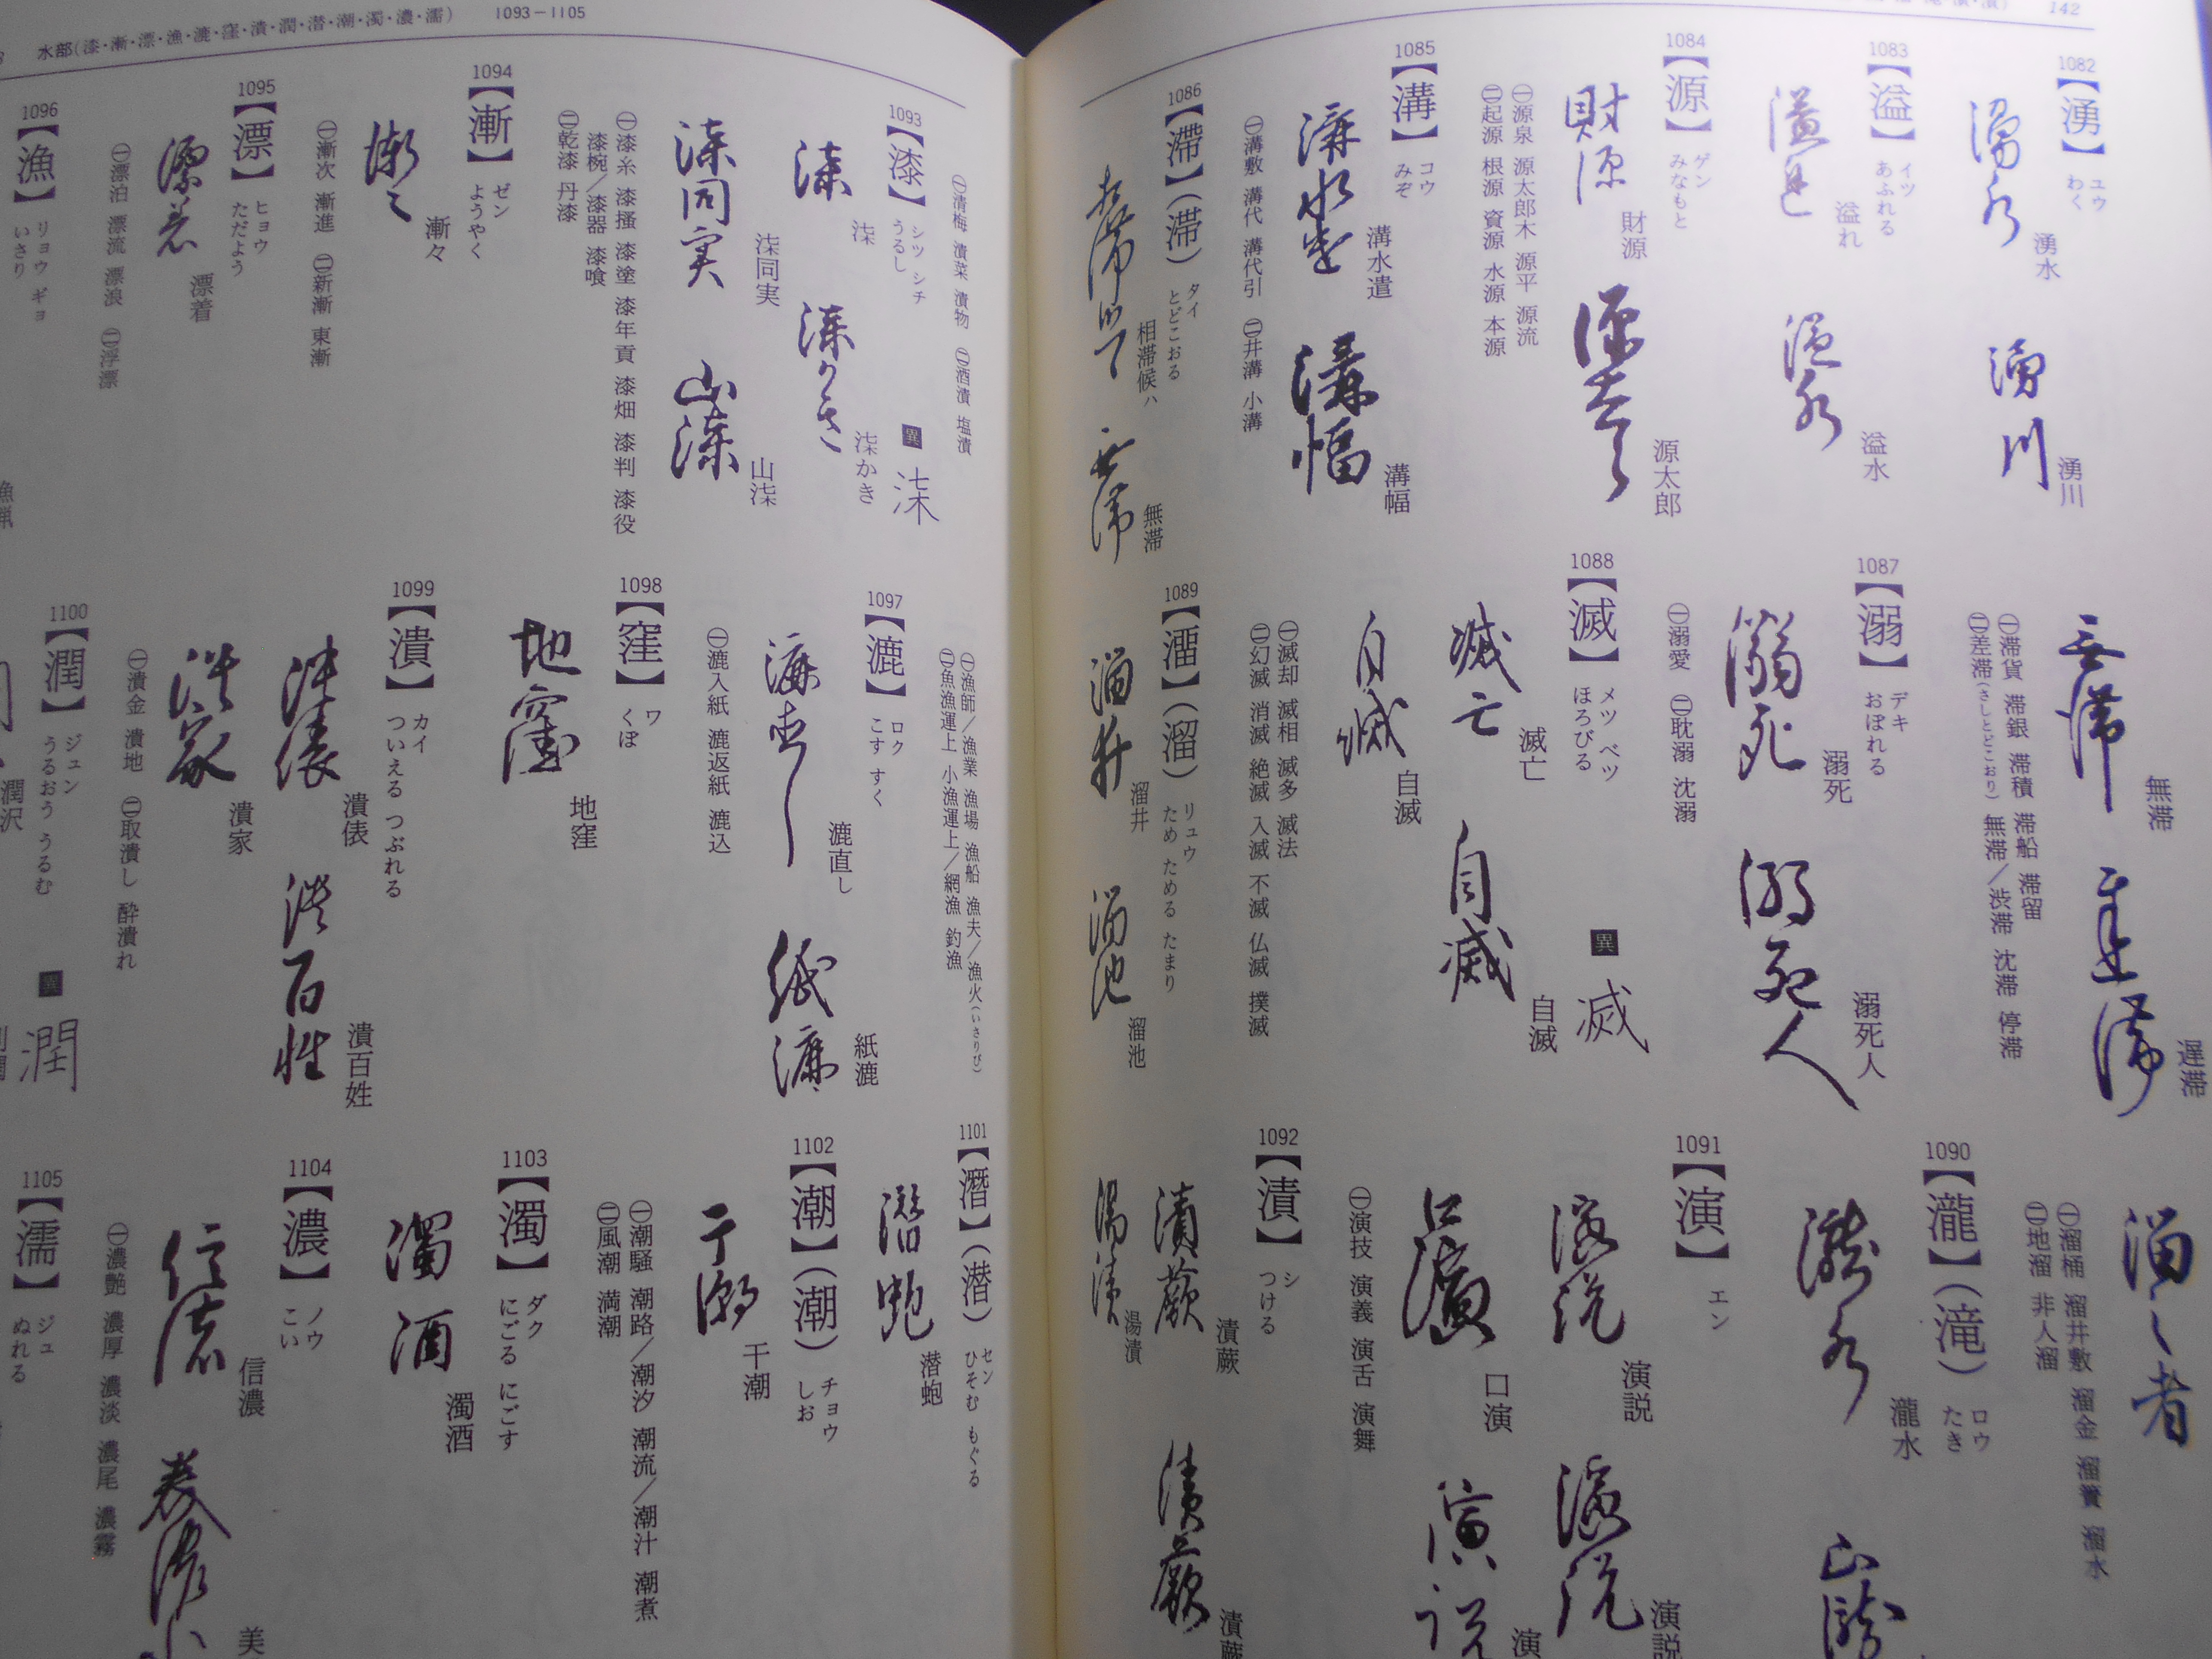 142
1082
【湧】ユウ わく
湧水
湧川
1083
【溢】イツ あふれる
溢れ
溢水
1084
【源】ゲン みなもと
財源
源太郎
㊀源泉 源太郎木 源平 源流
㊁起源 根源 資源 水源 本源
1085
【溝】コウ みぞ
溝水遣
溝幅
㊀溝敷 溝代 溝代引 ㊁井溝 小溝
1086
【滯】(滞)タイ とどこおる
相滞候ハ
無滞
無滞
遅滞
㊀滞貨 滞銀 滞積 滞船 滞留
㊁差滞(さしとどこおり) 無滞/渋滞 沈滞 停滞
1087
【溺】デキ おぼれる
溺死
溺死人
㊀溺愛 ㊁耽溺 沈溺
1088
【滅】メツ ベツ ほろびる
異 滅
滅亡
自滅
自滅
㊀滅却 滅相 滅多 滅法
㊁幻滅 消滅 絶滅 入滅 不滅 仏滅 撲滅
1089
【澑】(溜)リュウ ため ためる たまり
溜井
溜池
㊀溜桶 溜井敷 溜金 溜簀 溜水
㊁地溜 非人溜
1090
【瀧】(滝)ロウ たき
瀧水
1091
【演】エン
演説
演説
口演
演
㊀演技 演義 演舌 演舞
1092
【漬】シ つける
漬蕨
漬蕨
湯漬
水部(漆・漸・漂・漁・漉・窪・潰・潤・潜・潮・濁・濃・濡) 1093－1105
㊀清梅 漬菜 漬物 ㊁酒漬 塩漬
1093
【漆】シツ シチ うるし
異 柒
柒
柒かき
柒同実
山柒
㊀漆糸 漆搔 漆塗 漆年貢 漆畑 漆判 漆役
漆椀/漆器 漆喰
㊁乾漆 丹漆
1094
【漸】ゼン ようやく
漸々
㊀漸次 漸進 ㊁新漸 東漸
1095
【漂】ヒョウ ただよう
漂着
㊀漂泊 漂流 漂浪 ㊁浮漂
1096
【漁】リョウ ギョ いさり
㊀漁師/漁業 漁場 漁船 漁夫/漁火(いさりび)
㊁魚漁運上 小漁運上/網漁 釣漁
1097
【漉】ロク こす すく
漉直し
紙漉
㊀漉入紙 漉返紙 漉込
1098
【窪】ワ くぼ
地窪
1099
【潰】カイ ついえる つぶれる
潰俵
潰百姓
潰家
㊀潰金 潰地 ㊁取潰し 酔潰れ
1100
【潤】ジュン うるおう うるむ
異 潤
潤沢
1101
【潛】(潜)セン ひそむ もぐる
潜蚫
1102
【潮】(潮)チョウ しお
干潮
㊀潮騒 潮路/潮汐 潮流/潮汁 潮煮
㊁風潮 満潮
1103
【濁】ダク にごる にごす
濁酒
1104
【濃】ノウ こい
信濃
美
㊀濃艶 濃厚 濃淡 濃尾 濃霧
1105
【濡】ジュ ぬれる